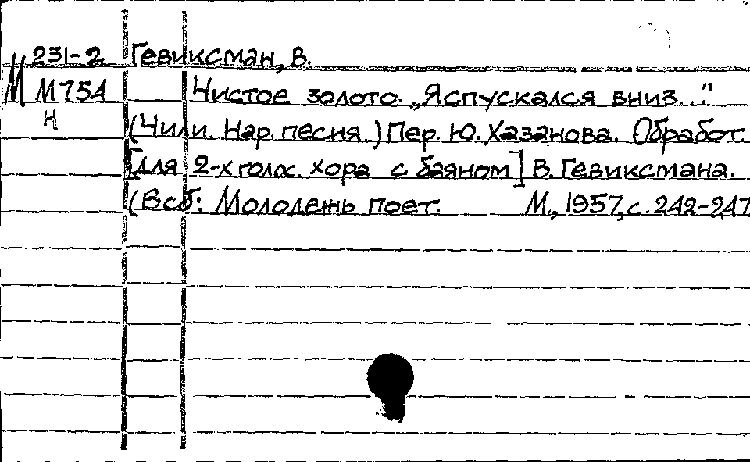 231-2 Гевиксман, В.
М М754 Чистое золото. „Я спускался вниз..."
Н (Чили. Нар. песня.) Пер. Ю. Хазанова. Обработ.
[для 2-х голос. хора с баяном] В. Гевиксмана.
(В сб: Молодежь поет. М., 1957, с. 242-247